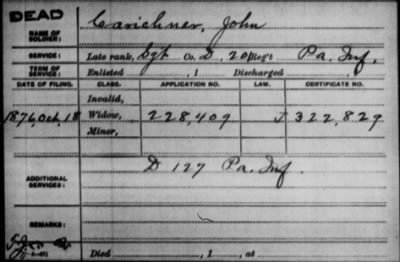 DEAD
NAME OF SOLDIER:
Carichner, John
SERVICE:
Late rank, Sgt Co. D, 201 Reg't Pa. Inf.
TERM OF SERVICE:
Enlisted , 1 Discharged
DATE OF FILING. CLASS. APPLICATION NO. LAW. CERTIFICATE NO.
Invalid,
1876, Oct. 18 Widow, 228,409 J 322,829
Minor,
ADDITIONAL SERVICES:
D 127 Pa. Inf.
REMARKS:
Died , 1 , at